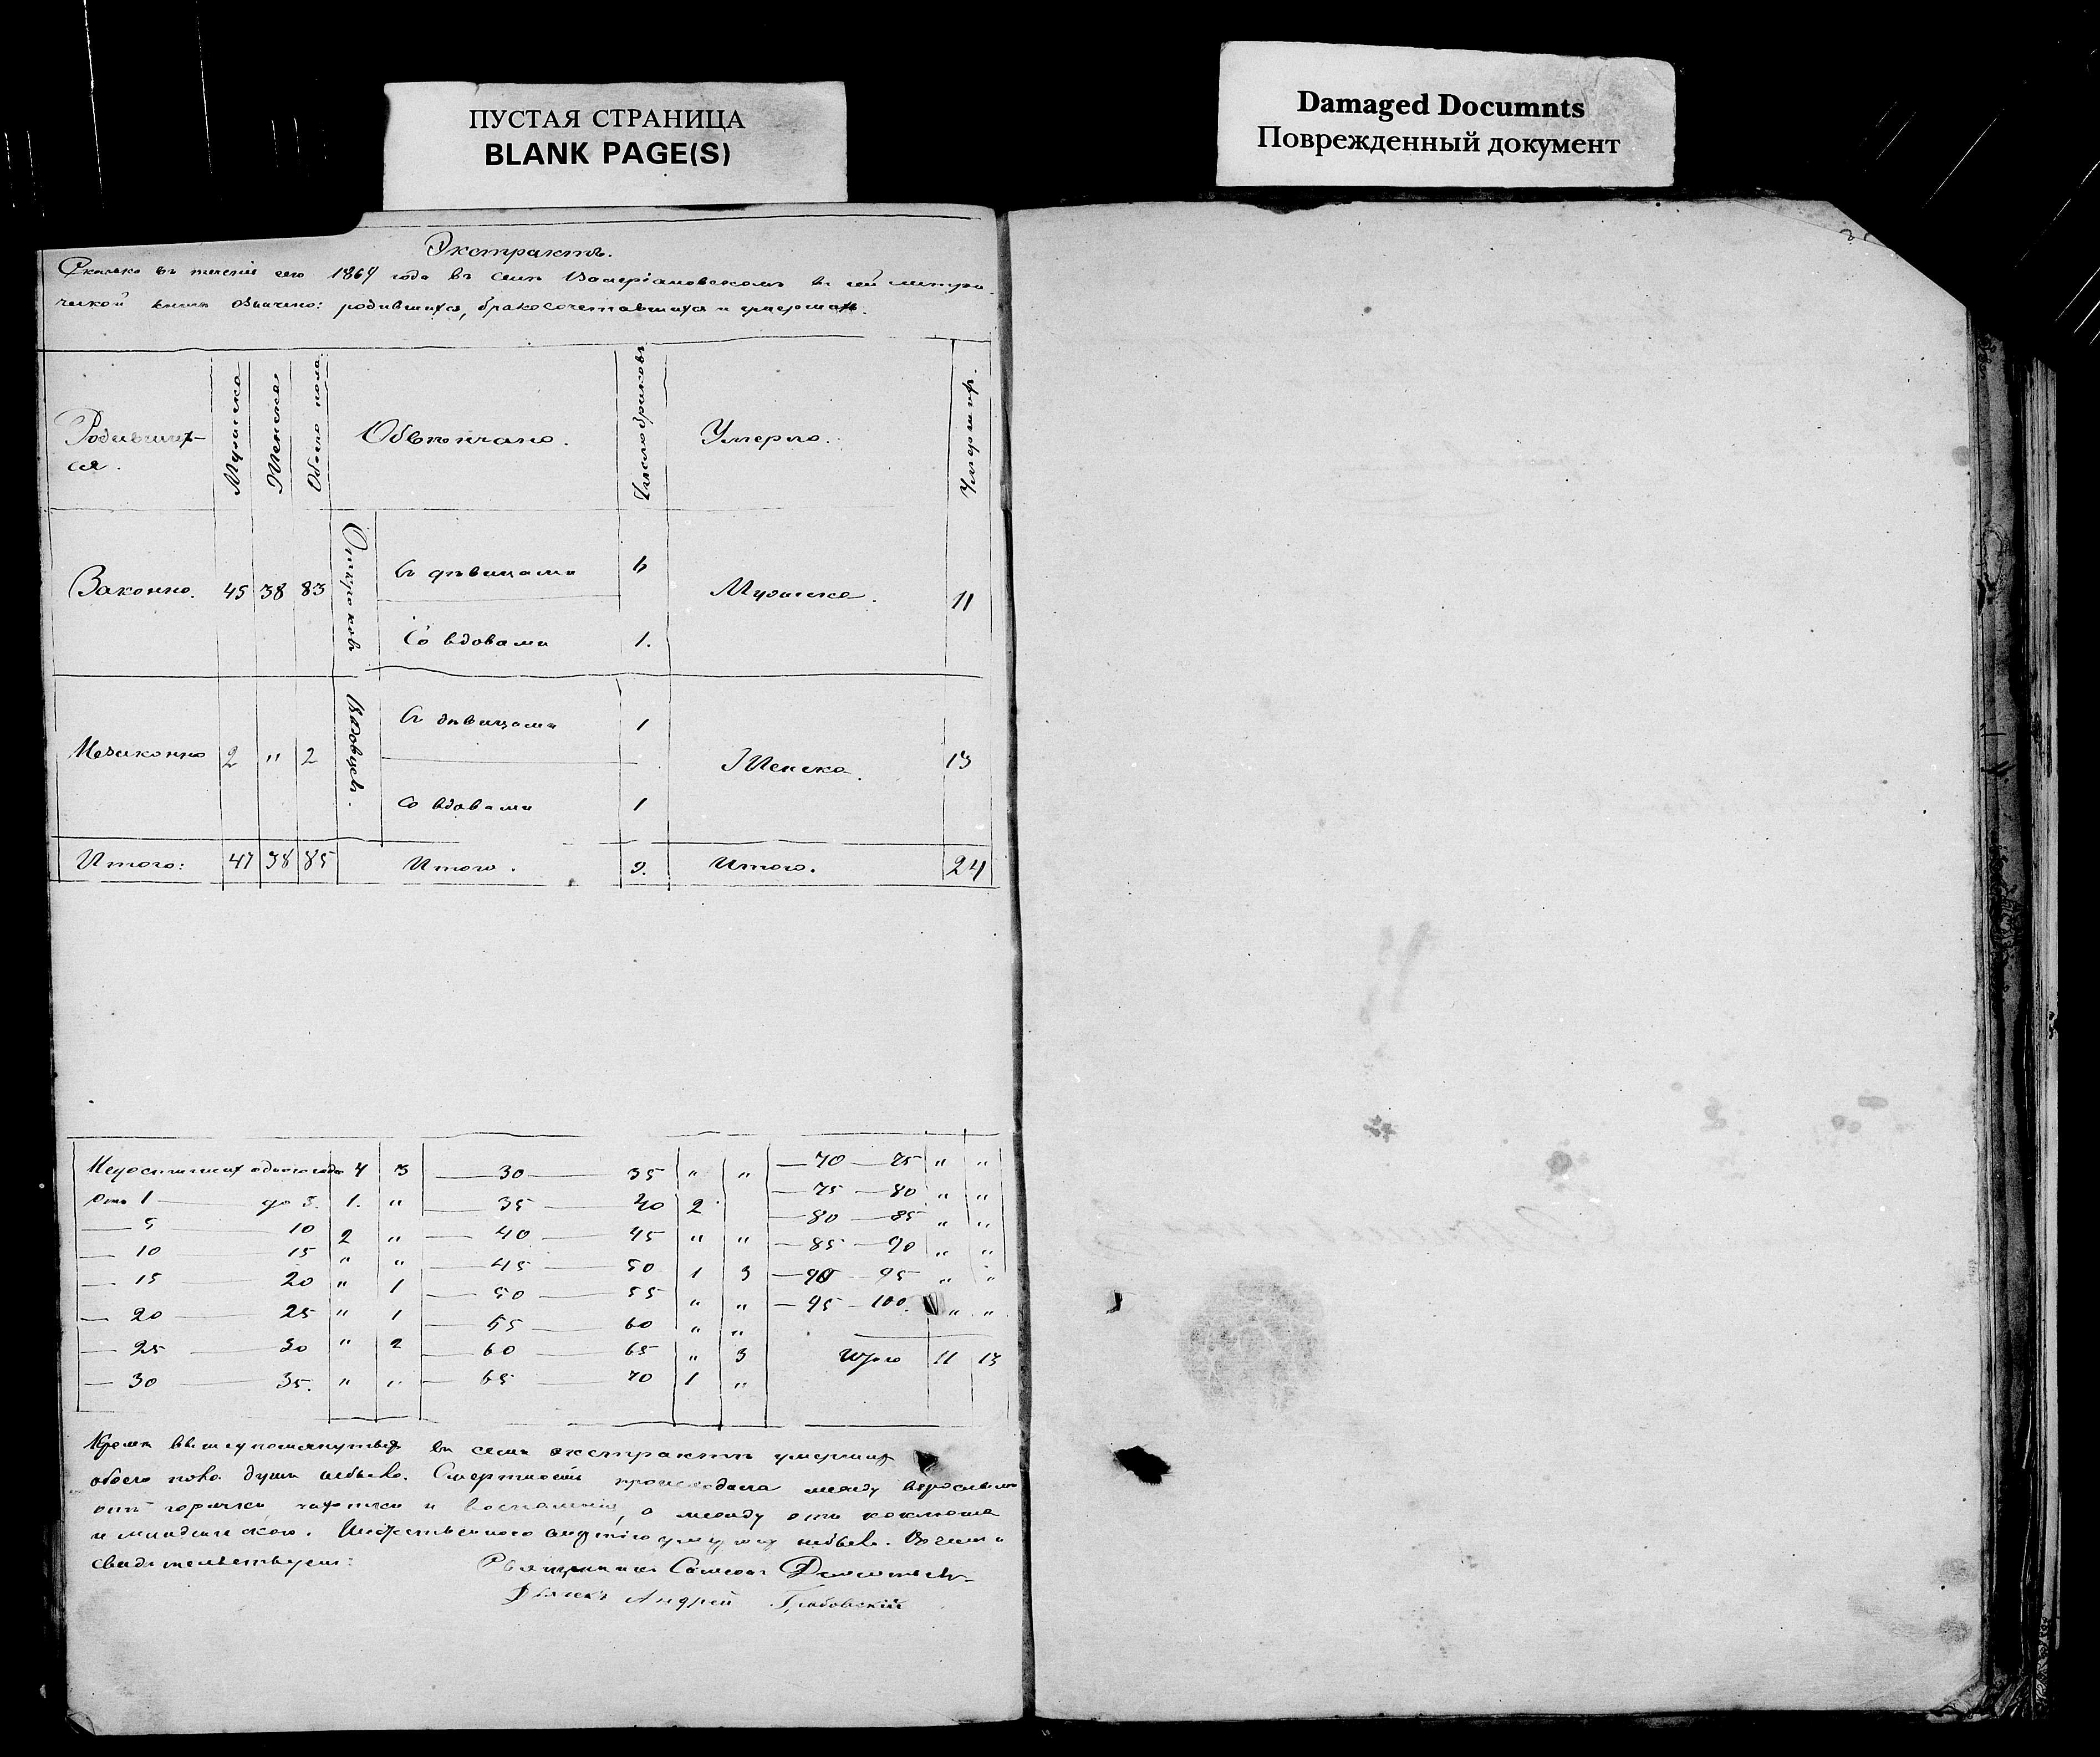 ПУСТАЯ СТРАНИЦА
BLANK PAGE(S)
Damaged Documnts
Поврежденный документ
Экстрактъ.
Сколько въ теченіе сего 1864 года въ селѣ Валеріановскомъ въ сей метри-
ческой книгѣ означено: родившихся, бракосочетавшихся и умершихъ.
Родивших-
ся.
Мужеска
Женска
Обоего пола
Обвѣнчано.
Число браковъ
Умерло.
Умершихъ.
Законно. 45 38 83
Отроковъ
Съ дѣвицами 6
Мужеска. 11
Со вдовами 1.
Незаконно 2 " 2
Вдовцевъ.
Съ дѣвицами 1
Женска. 13
Со вдовами 1
Итого: 47 38 85 Итого. 9. Итого. 24
Недостигших одного года 4 3 — 30 — 35 " " — 70 — 75 " "
Отъ 1 — до 5. 1. " — 35 — 40 2 — 75 — 80 " "
— 5 — 10 2 " — 40 — 45 " " — 80 — 85 " "
— 10 — 15 " " — 45 — 50 1 3 — 85 — 90 " "
— 15 — 20 " 1 — 50 — 55 " " — 90 — 95 " "
— 20 — 25 " 1 — 55 — 60 " " — 95 — 100. " "
— 25 — 30 " 2 — 60 — 65 " 3 Итого 11 13
— 30 — 35. " " — 65 — 70 1 "
Кромѣ вышеупомянутыхъ въ семъ экстрактѣ умершихъ
обоего пола душъ небыло. Смертность происходила между взрослыми
отъ горячки чахотки и воспаленія, а между отъ коклюша
и младенческою. небыло. Въ чемъ и
свидѣтельствуемъ:
Священникъ Симеонъ
Дьячекъ Андрей Грабовскій